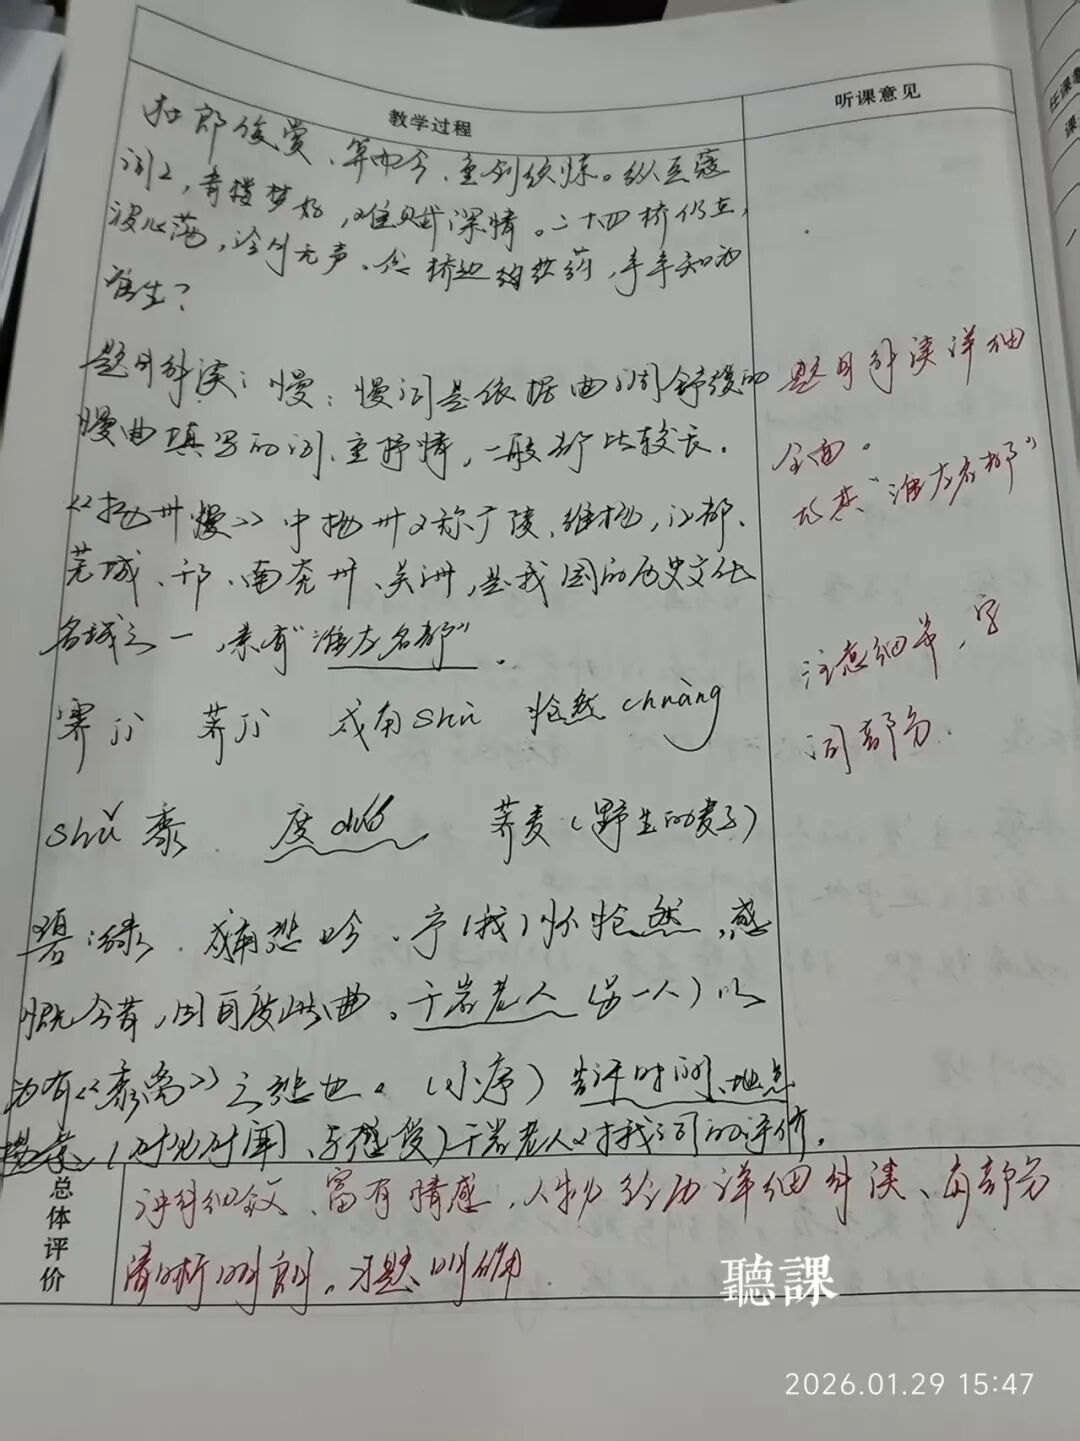 教学过程
听课意见
任课教
课
杜郎俊赏、算而今、重到须惊。纵豆蔻
词工,青楼梦好,难赋深情。二十四桥仍在,
波心荡,冷月无声、念桥边红药,年年知为
谁生?
题目解读:慢:慢词是依据曲调舒缓的
慢曲填写的词、重抒情,一般都比较长。
《扬州慢》中扬州又称广陵、维扬,江都、
芜城、邗、南兖州、吴州,是我国的历史文化
名城之一,素有“淮左名都”。
霁jì 荠jì 戍角shù 怆然chuàng
shǔ黍 度duó 荞麦(野生的麦子)
碧:绿 戍角悲吟、予(我)怀怆然,感
慨今昔,因自度此曲。千岩老人(另一人)以
为有《黍离》之悲也。(小序)告诉时间、地点
(所见所闻、与感受)千岩老人对我词的评价。
题目解读详细
全面。
“淮左名都”
注意细节,字
词部分.
总体评价
讲解细致、富有情感,人物经历详细解读、each部分
清晰明朗。习题明确.
聽課
2026.01.29 15:47